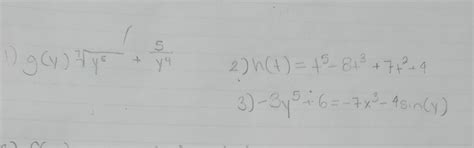 1) g(y) ⁷√y⁶ / + 5/y⁴
2) h(t) = t⁵ - 8t³ + 7t² + 4
3) -3y⁵ + 6 = -7x³ - 4 sin(y)